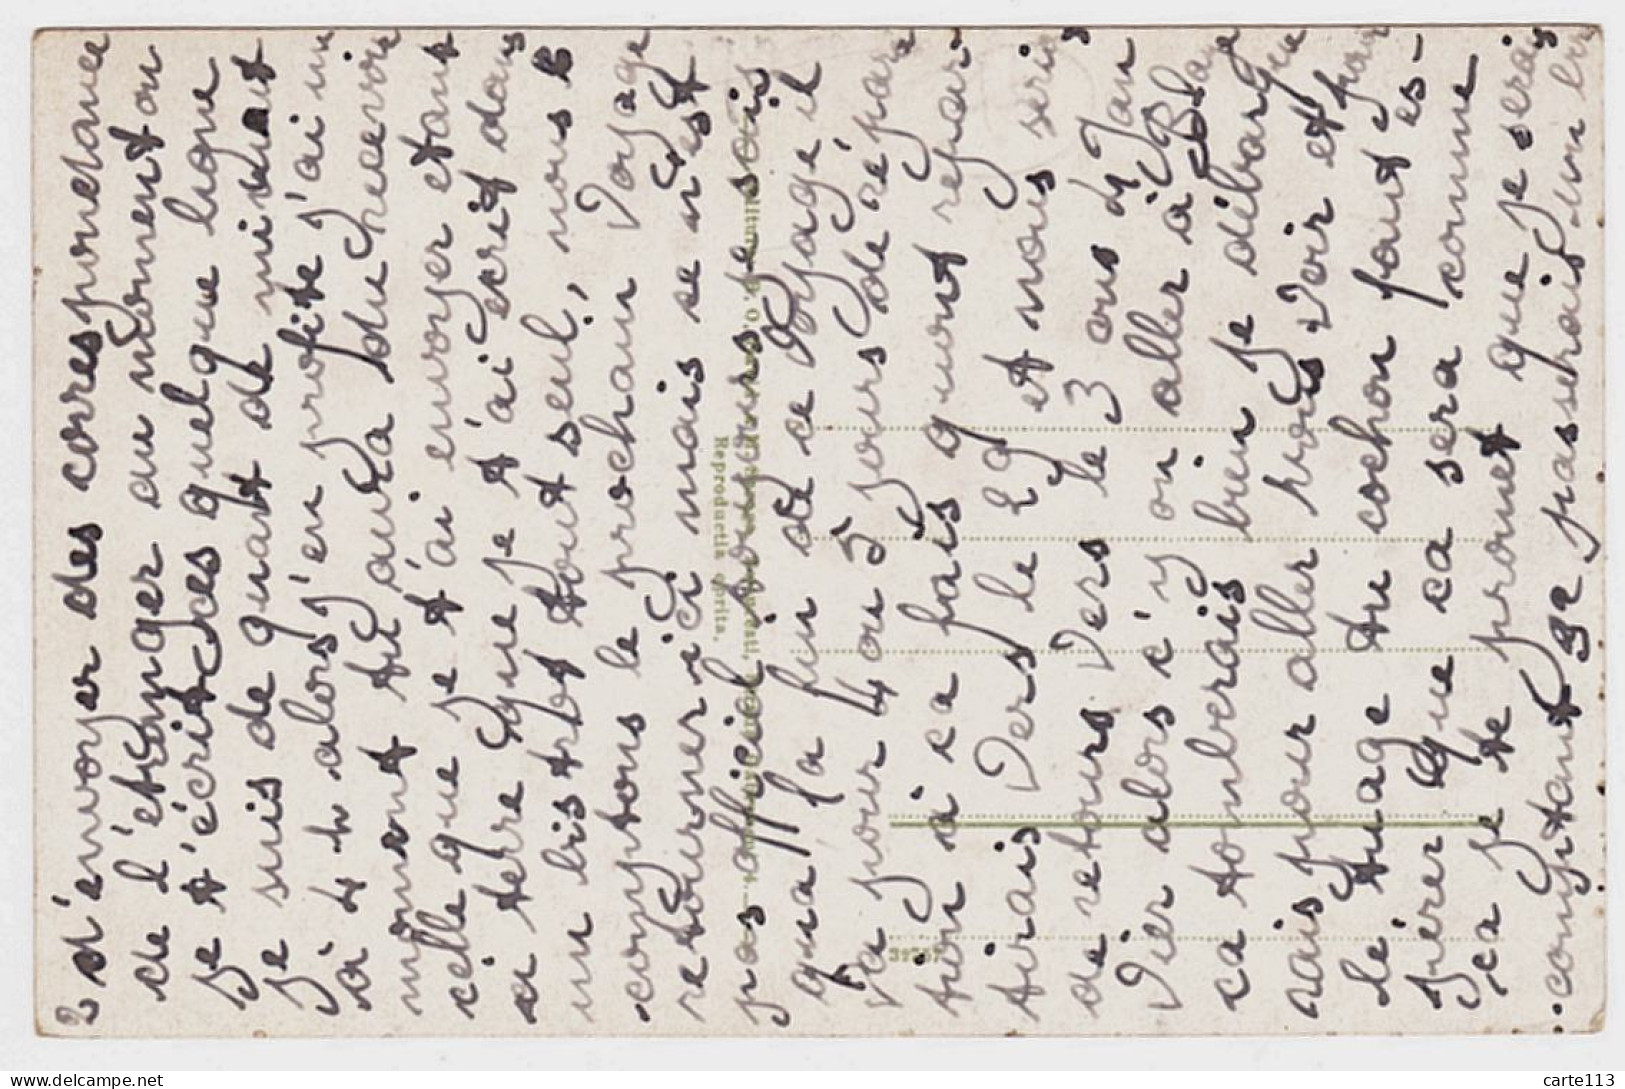 2 d'envoyer des correspondances
de l'étranger au moment ou
je t'écrit ces quelque ligne
je suis de quart de minuit
à 4 h alors j'en profite j'ai un
moment tu aura du recevoir
celle que je t'ai envoyer etant
a terre que je t'ai ecrit dans
un bistrot tout seul, nous
comptons le prochain voyage
retourner ici mais se n'est
pas officiel toujours je sais
qua la fin de ce voyage il
va pour 4 ou 5 jours de répara
tion à ca fais quont repar-
tirais Vers le 29 et nous serions
de retours Vers le 3 ou 4 Jan
vier alors c'y on aller à
ca tomberais bien je débarque
rais pour aller vous voir et pour
le tuage du cochon faut es-
pérer que ca sera comme
ca je te promet que je serais
comptant je passerais un
32757
Reproductia oprita.
carte113